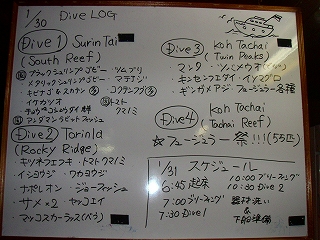 1/30 Dive LOG
Dive 1 Surin Tai
(South Reef)
ブラックシュリンプゴビー・ツムブリ
メタリックシュリンプゴビー・マテアジ
キビナゴ&スカシテン
イケカツオ
トマトクマノミ
アンダマンラビットフィッシュ
Dive 2 Torinla
(Rocky Ridge)
キツネフエフキ・トマトクマノミ
イシヨウジ・ワカヨウジ
ナポレオン・ジョーフィッシュ
サメ×2・ヤッコエイ
マッコスカーラス
Dive 3 Koh Tachai
(Twin Peaks)
マンタ・ツバメウオ
キンセンフエダイ・イソマグロ
ギンガメアジ・フュージュラー各種
Dive 4 Koh Tachai
(Tachai Reef)
☆フュージュラー祭!!!(55匹)
1/31 スケジュール
6:45 起床
7:00 ブリーフィング
7:30 Dive 1
10:00 ブリーフィング
10:30 Dive 2
器材洗い &
下船準備